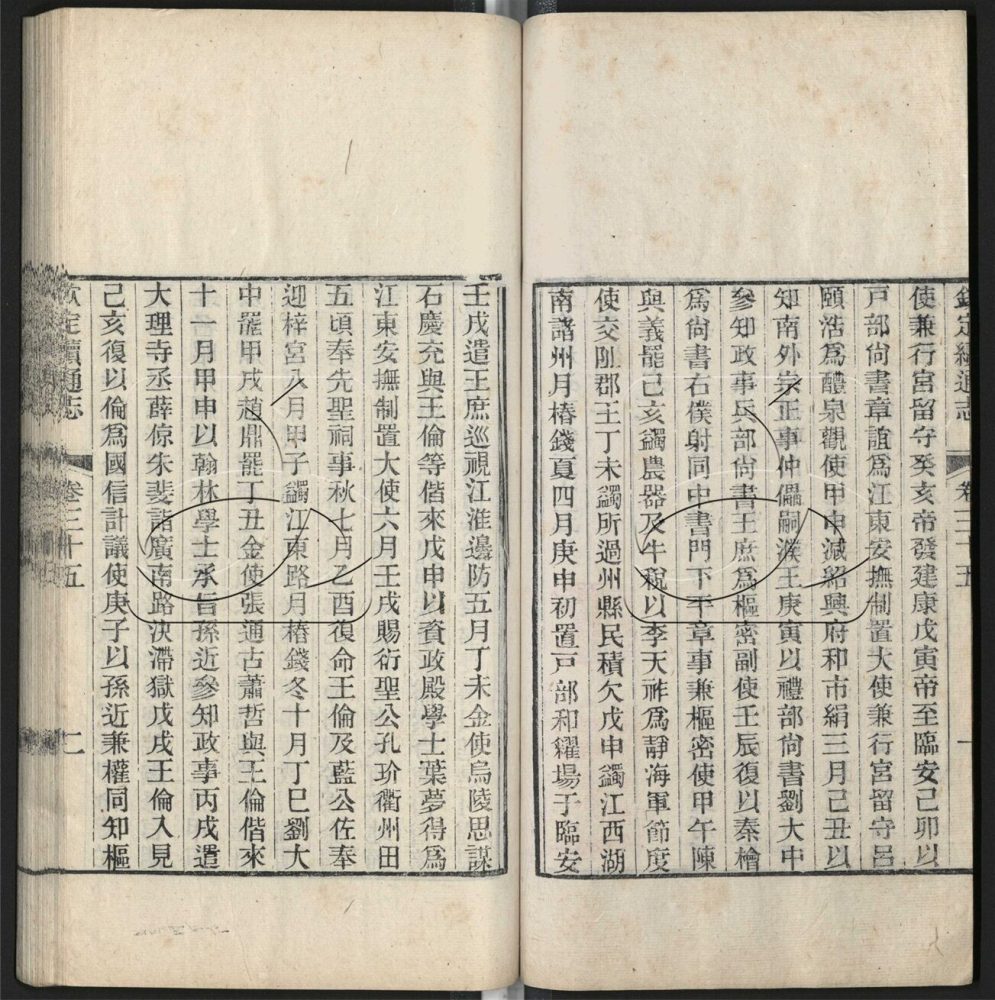 欽定續通志 卷三十五 一
使兼行宮留守癸亥帝發建康戊寅帝至臨安己卯以
戸部尙書章誼爲江東安撫制置大使兼行宮留守呂
頤浩爲醴泉觀使甲申減紹興府和市絹三月己丑以
知南外宗正事仲儡嗣濮王庚寅以禮部尙書劉大中
參知政事兵部尙書王庶爲樞密副使壬辰復以秦檜
爲尙書右僕射同中書門下平章事兼樞密使甲午陳
與義罷己亥蠲農器及牛稅以李天祚爲靜海軍節度
使交阯郡王丁未蠲所過州縣民積欠戊申蠲江西湖
南諸州月樁錢夏四月庚申初置戸部和糴場于臨安
壬戌遣王庶巡視江淮邊防五月丁未金使烏陵思謀
石慶充與王倫等偕來戊申以資政殿學士葉夢得爲
江東安撫制置大使六月壬戌賜衍聖公孔玠衢州田
五頃奉先聖祠事秋七月乙酉復命王倫及藍公佐奉
迎梓宮八月甲子蠲江東路月樁錢冬十月丁巳劉大
中罷甲戌趙鼎罷丁丑金使張通古蕭哲與王倫偕來
十一月甲申以翰林學士承旨孫近參知政事丙戌遣
大理寺丞薛倞朱斐詣廣南路決滯獄戊戌王倫入見
己亥復以倫爲國信計議使庚子以孫近兼權同知樞
欽定續通志 卷三十五 二